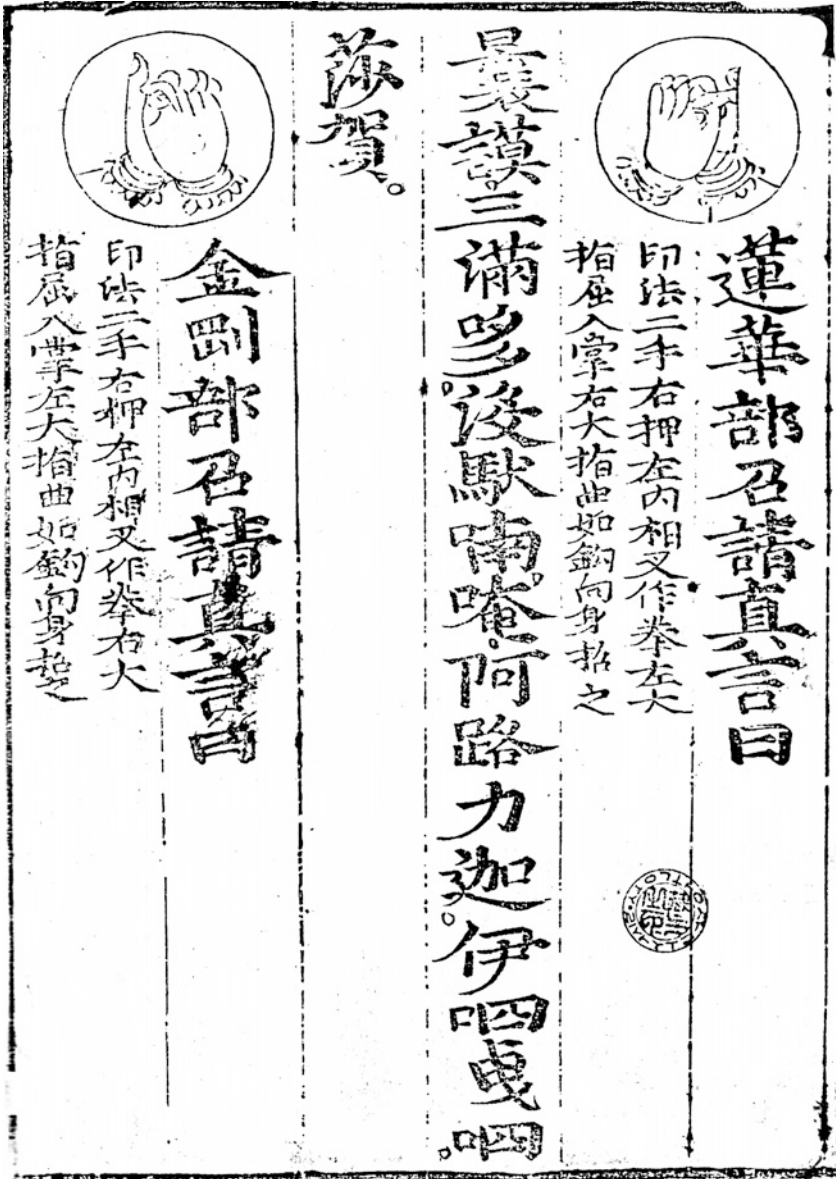 蓮華部召請真言曰
印法二手右押左內相叉作拳左大
指屈入掌右大指曲如鉤向身招之
曩謨三滿哆。沒馱喃。唵。阿路力迦。伊呬曳呬。
莎賀。
金剛部召請真言曰
印法二手右押左內相叉作拳右大
指屈入掌左大指曲如鉤向身招之